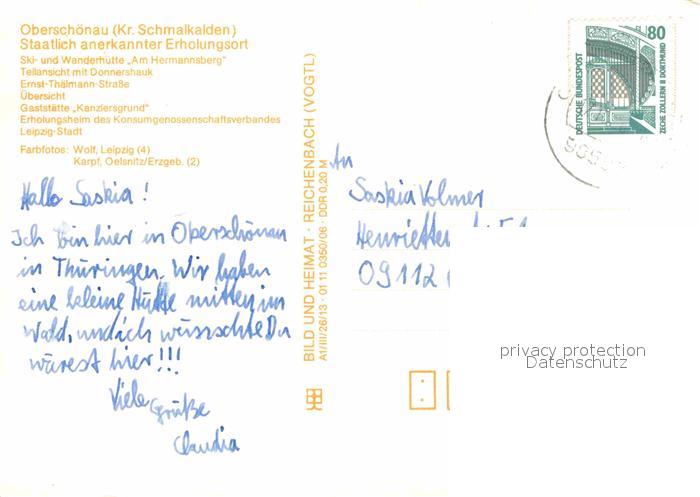 Oberschönau (Kr. Schmalkalden)
Staatlich anerkannter Erholungsort
Ski- und Wanderhütte „Am Hermannsberg"
Teilansicht mit Donnershauk
Ernst-Thälmann-Straße
Übersicht
Gaststätte „Kanzlersgrund"
Erholungsheim des Konsumgenossenschaftsverbandes
Leipzig-Stadt
Farbfotos: Wolf, Leipzig (4)
Karpf, Oelsnitz/Erzgeb. (2)
Hallo Saskia!
Ich bin hier in Oberschönau
in Thüringen. Wir haben
eine kleine Hütte mitten im
Wald, und ich wünschte Du
wärest hier!!!
Viele Grüße
Claudia
BILD UND HEIMAT · REICHENBACH (VOGTL)
A1/III/26/13 · 01 11 0350/06 · DDR 0,20 M
80
DEUTSCHE BUNDESPOST
ZECHE ZOLLERN II DORTMUND
An
Saskia Volmer
Henrietten
09112
privacy protection
Datenschutz